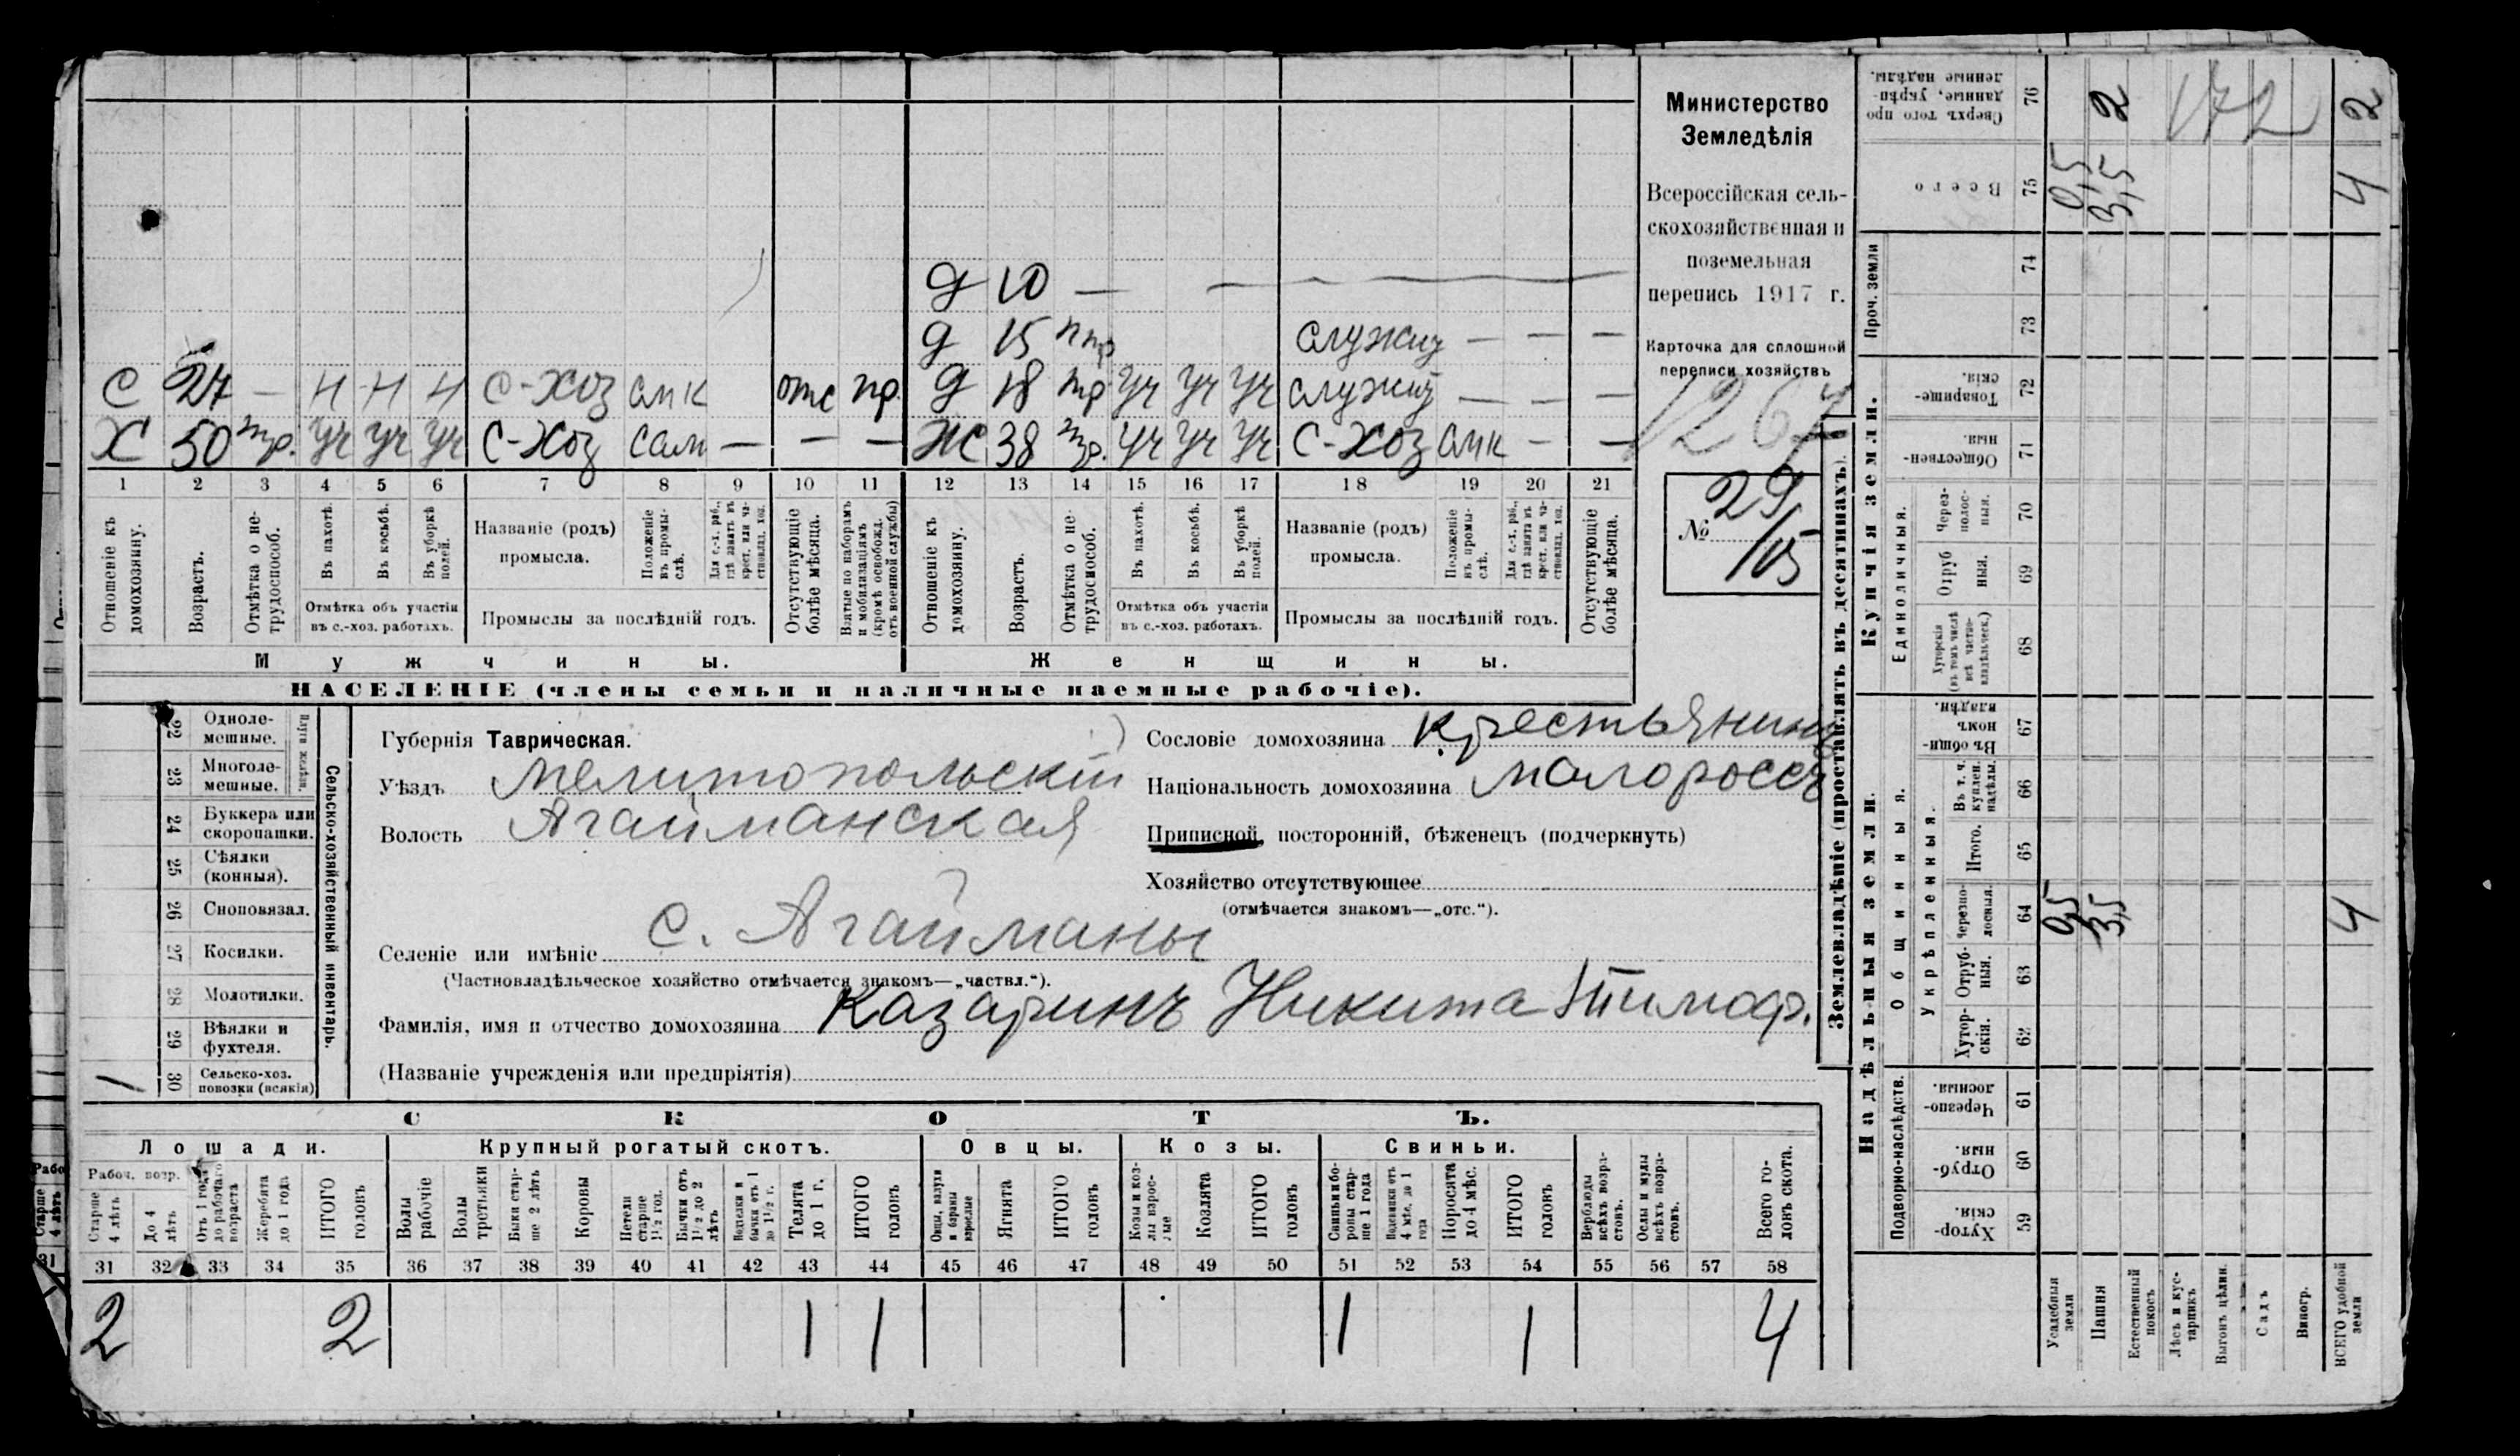 Министерство
Земледѣлія
Всероссійская сель-
скохозяйственная и
поземельная
перепись 1917 г.
Карточка для сплошной
переписи хозяйствъ
1267
№ 29/15
д 10 — — —
д 15 птр служит — — —
С 27 — н н н с-хоз смк отс пр. д 18 тр уч уч уч служит — — —
Х 50 тр. уч уч уч с-хоз сам — — — Ж 38 тр. уч уч уч с-хоз смк — —
1 2 3 4 5 6 7 8 9 10 11 12 13 14 15 16 17 18 19 20 21
Отношеніе къ домохозяину.
Возрастъ.
Отмѣтка о не-трудоспособ.
Въ пахотѣ.
Въ косьбѣ.
Въ уборкѣ полей.
Отмѣтка объ участіи въ с.-хоз. работахъ.
Названіе (родъ) промысла.
Положеніе въ промы-слѣ.
Для с.-х. раб., гдѣ занятъ въ крест. или ча-стновлад. хоз.
Промыслы за послѣдній годъ.
Отсутствующіе болѣе мѣсяца.
Взятые по наборамъ и мобилизаціямъ (кромѣ освобожд. отъ военной службы)
Отношеніе къ домохозяину.
Возрастъ.
Отмѣтка о не-трудоспособ.
Въ пахотѣ.
Въ косьбѣ.
Въ уборкѣ полей.
Отмѣтка объ участіи въ с.-хоз. работахъ.
Названіе (родъ) промысла.
Положеніе въ промы-слѣ.
Для с.-х. раб., гдѣ занятъ въ крест. или ча-стновлад. хоз.
Промыслы за послѣдній годъ.
Отсутствующіе болѣе мѣсяца.
Мужчины. Женщины.
НАСЕЛЕНІЕ (члены семьи и наличные наемные рабочіе).
Сельско-хозяйственный инвентарь.
Плуги желѣзн.
22 Одноле-мешные.
23 Многоле-мешные.
24 Буккера или скоропашки.
25 Сѣялки (конныя).
26 Сноповязал.
27 Косилки.
28 Молотилки.
29 Вѣялки и фухтеля.
30 Сельско-хоз. повозки (всякія)
1
Губернія Таврическая.
Уѣздъ Мелитопольскій
Волость Агайманская
Селеніе или имѣніе с. Агайманы
(Частновладѣльческое хозяйство отмѣчается знакомъ—„частвл.“).
Фамилія, имя и отчество домохозяина Казаринъ Никита Тимоф.
(Названіе учрежденія или предпріятія)
Сословіе домохозяина крестьянинъ
Національность домохозяина малороссъ
Приписной, посторонній, бѣженецъ (подчеркнуть)
Хозяйство отсутствующее
(отмѣчается знакомъ—„отс.“).
СКОТЪ.
Лошади. Крупный рогатый скотъ. Овцы. Козы. Свиньи.
Рабоч. возр.
Старше 4 лѣтъ
До 4 лѣтъ
Отъ 1 года до рабочаго возраста
Жеребята до 1 года
ИТОГО головъ
Волы рабочіе
Волы третьяки
Быки стар-ше 2 лѣтъ
Коровы
Нетели старше 1½ год.
Бычки отъ 1½ до 2 лѣтъ
Телята до 1 г.
ИТОГО головъ
Овцы, валухи и бараны взрослые
Ягнята
ИТОГО головъ
Козы и коз-лы взрос-лые
Козлята
ИТОГО головъ
Свиньи и бо-ровы стар-ше 1 года
Подсвинки отъ 4 мѣс. до 1 года
Поросята до 4 мѣс.
ИТОГО головъ
Верблюды всѣхъ возра-стовъ.
Ослы и мулы всѣхъ возра-стовъ.
Всего го-ловъ скота.
31 32 33 34 35 36 37 38 39 40 41 42 43 44 45 46 47 48 49 50 51 52 53 54 55 56 57 58
2 2 1 1 1 1 4
Землевладѣніе (проставлять въ десятинахъ).
Надѣльныя земли. Купчія земли. Проч. земли
Подворно-наслѣдств.
Общинныя.
Укрѣпленныя.
Единоличныя.
Хутор-скія. 59
Отруб-ныя. 60
Черезпо-лосныя. 61
Хутор-скія. 62
Отруб-ныя. 63
Черезпо-лосныя. 64 0,5 3,5 4
Итого. 65
Въ т. ч. куплен. надѣлы. 66
Въ общи-номъ владѣн. 67
Хуторскія (въ томъ числѣ всѣ частно-владѣльческ.) 68
Отруб ныя. 69
Через-полос-ныя. 70
Обществен-ныя. 71
Товарище-скія. 72
73
74
Всего 75 0,5 3,5 4
Сверхъ того про данные, укрѣп-ленные надѣлы. 76 2 2
172
Усадебныя земли
Пашня
Естественный покосъ
Лѣсъ и кус-тарникъ
Выгонъ цѣлин.
Садъ
Виногр.
ВСЕГО удобной земли